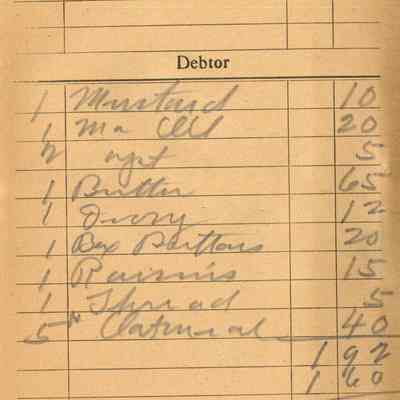 Debtor
1 Mustard 10
1 Ma 20
5
1 Butter 65
1 Ivory 12
1 Box Buttons 20
1 Raisins 15
1 Thread 5
5 Oatmeal 40
1 92
1 60